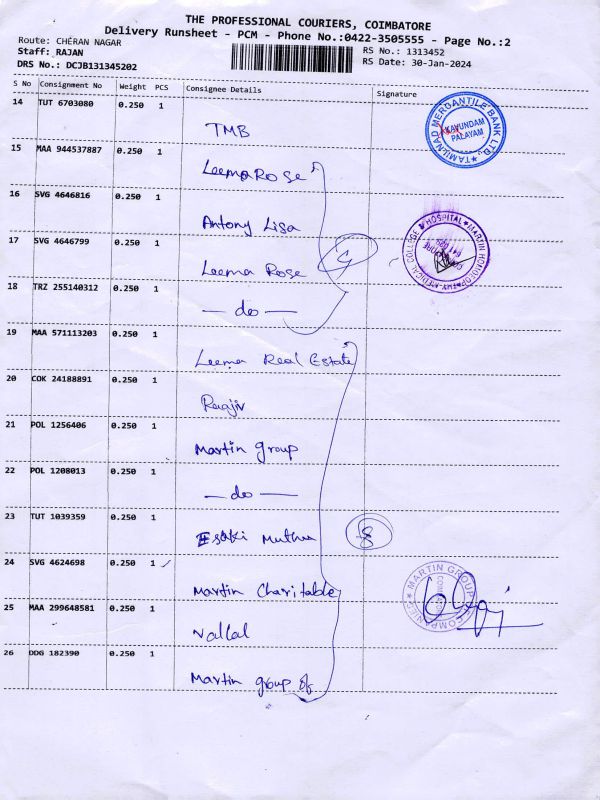 THE PROFESSIONAL COURIERS, COIMBATORE
Delivery Runsheet - PCM - Phone No.:0422-3505555 - Page No.:2
Route: CHERAN NAGAR
RS No.: 1313452
Staff: RAJAN
RS Date: 30-Jan-2024
DRS No.: DCJB131345202
S No Consignment No Weight PCS Consignee Details Signature
14 TUT 6703080 0.250 1
TMB
TAMILNAD MERCANTILE BANK LTD.
KAVUNDAM PALAYAM
15 MAA 944537887 0.250 1
Leema Rose
16 SVG 4646816 0.250 1
Antony Lisa
17 SVG 4646799 0.250 1
Leema Rose
4
MARTIN HOMOEOPATHY MEDICAL COLLEGE & HOSPITAL
18 TRZ 255140312 0.250 1
— do —
19 MAA 571113203 0.250 1
Leema Real Estate
20 COK 24188891 0.250 1
Raajiv
21 POL 1256406 0.250 1
Martin group
22 POL 1208013 0.250 1
— do —
23 TUT 1039359 0.250 1
Esaki Muthu
8
24 SVG 4624698 0.250 1
Martin Charitable
MARTIN GROUP COMPANIES
25 MAA 299648581 0.250 1
Vallal
26 DDG 182390 0.250 1
Martin group of